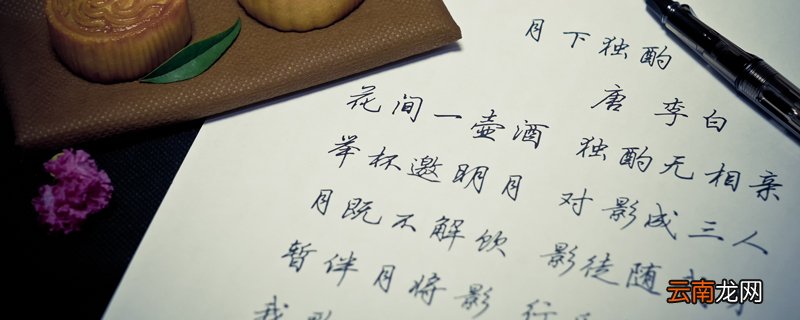 月下独酌
唐 李白
花间一壶酒 独酌无相亲
举杯邀明月 对影成三人
月既不解饮 影徒随
暂伴月将影 行
我
云南龙网